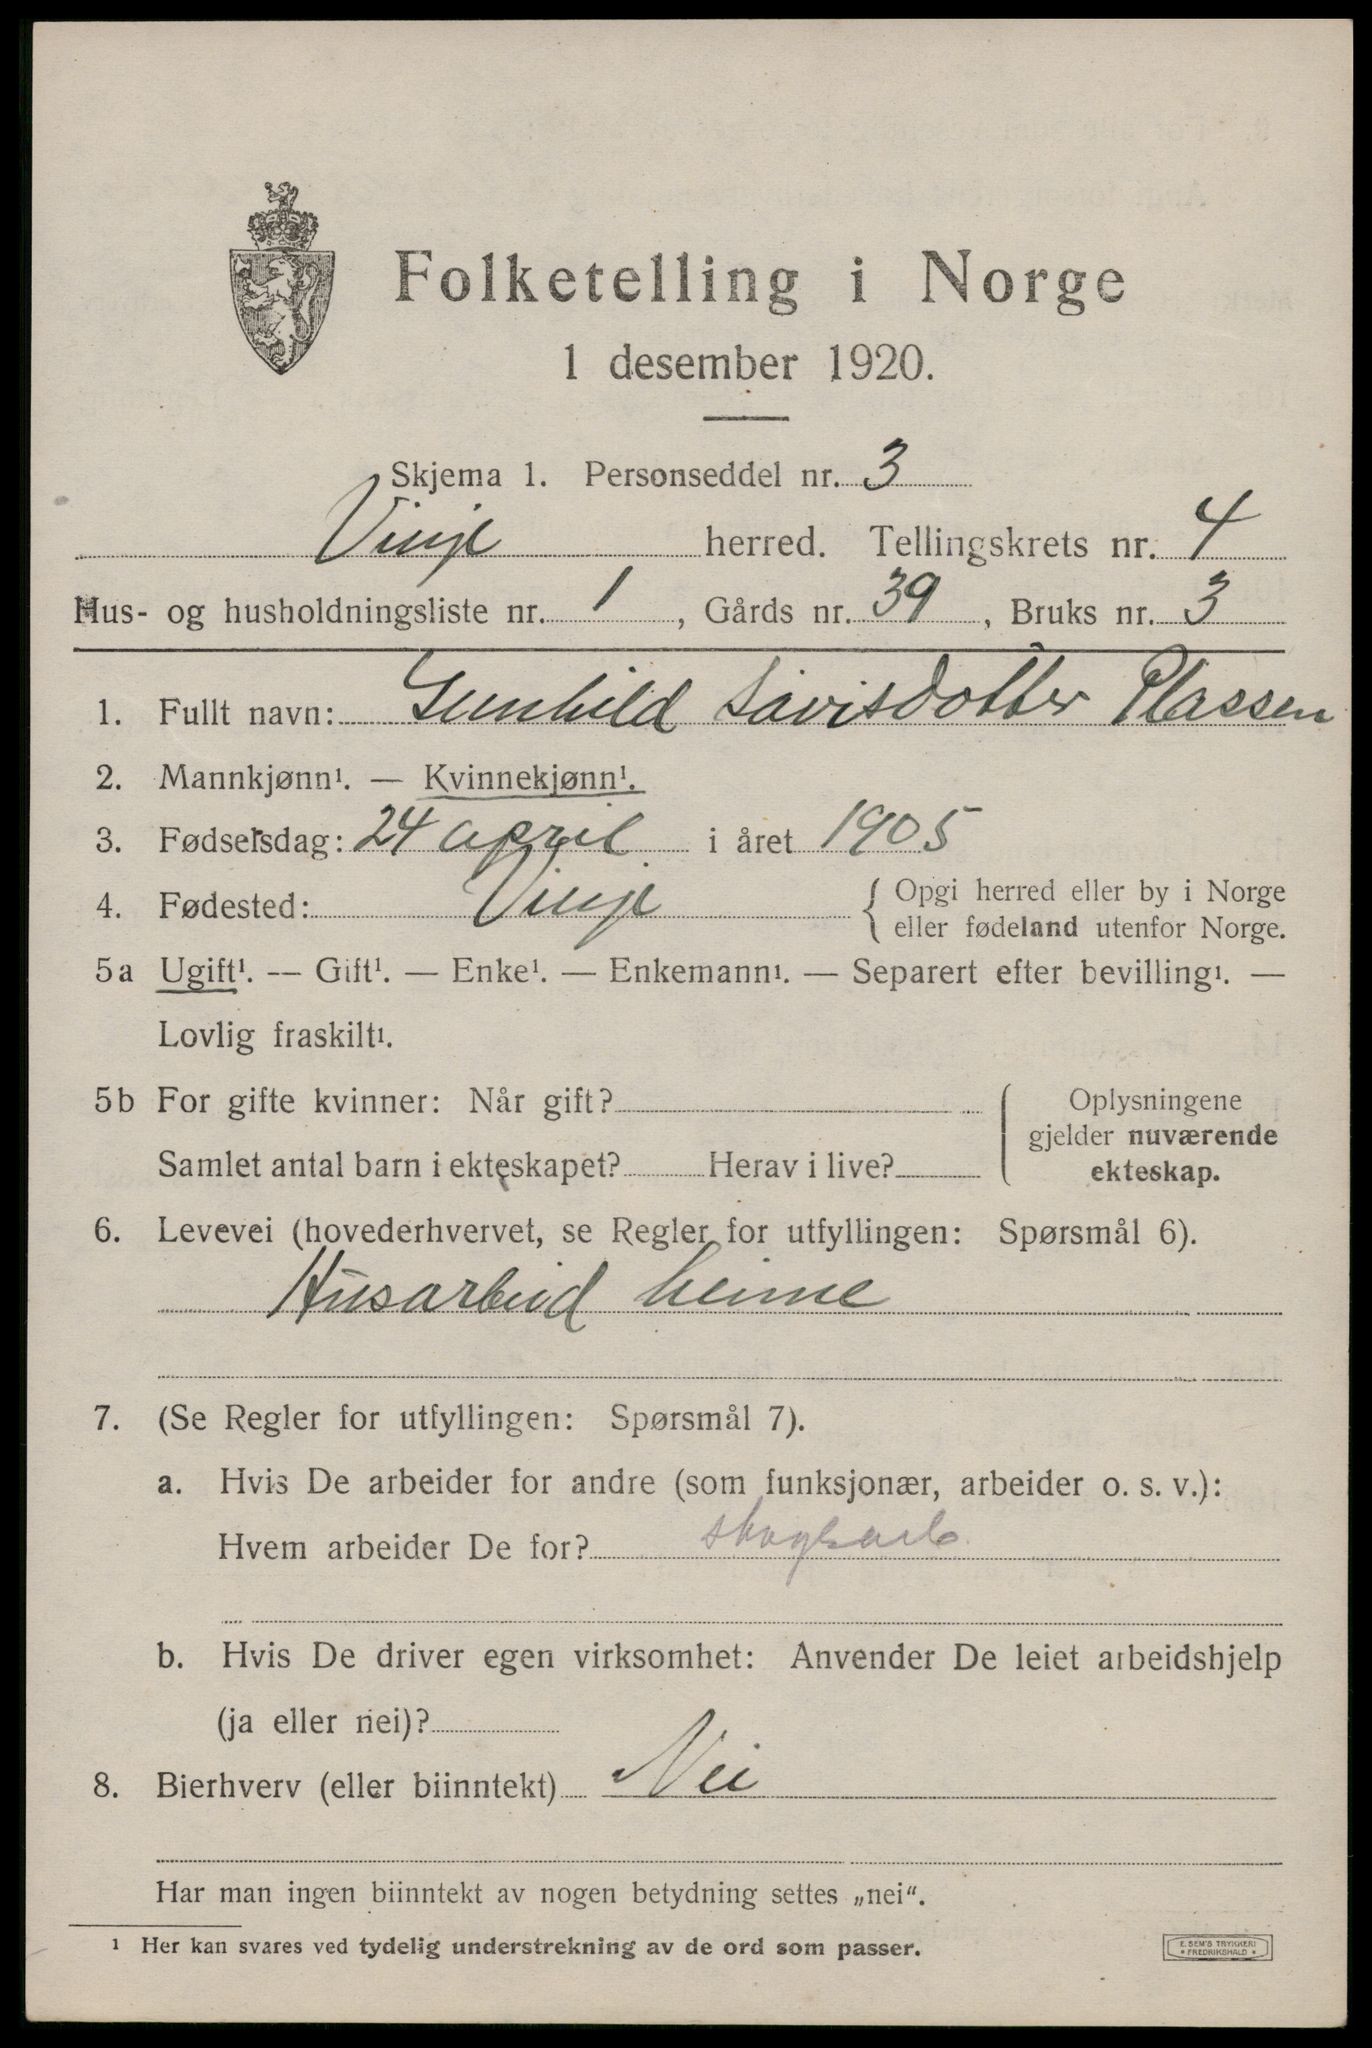 Folketelling i Norge
1 desember 1920.
Skjema 1. Personseddel nr. 3
Vinje herred. Tellingskrets nr. 4
Hus- og husholdningsliste nr. 1, Gårds nr. 39, Bruks nr. 3
1. Fullt navn: Gunhild Sàvisdotter Plassen
2. Mannkjønn¹. — Kvinnekjønn¹.
3. Fødselsdag: 24 april i året 1905
4. Fødested: Vinje { Opgi herred eller by i Norge
eller fødeland utenfor Norge.
5a Ugift¹. — Gift¹. — Enke¹. — Enkemann¹. — Separert efter bevilling¹. —
Lovlig fraskilt¹.
5b For gifte kvinner: Når gift?
Samlet antal barn i ekteskapet? Herav i live?
Oplysningene
gjelder nuværende
ekteskap.
6. Levevei (hovederhvervet, se Regler for utfyllingen: Spørsmål 6).
Husarbeid heime
7. (Se Regler for utfyllingen: Spørsmål 7).
a. Hvis De arbeider for andre (som funksjonær, arbeider o. s. v.):
Hvem arbeider De for? skogsarb
b. Hvis De driver egen virksomhet: Anvender De leiet arbeidshjelp
(ja eller nei)?
8. Bierhverv (eller biinntekt) Nei
Har man ingen biinntekt av nogen betydning settes „nei“.
¹ Her kan svares ved tydelig understrekning av de ord som passer.
E. SEM'S TRYKKERI
* FREDRIKSHALD *